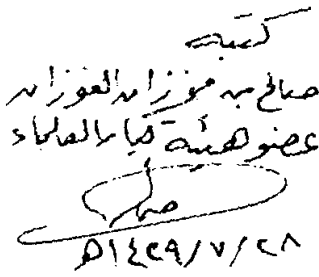 كتبه
صالح بن فوزان الفوزان
عضو هيئة كبار العلماء
صالح
١٤٢٩/٧/٢٨هـ